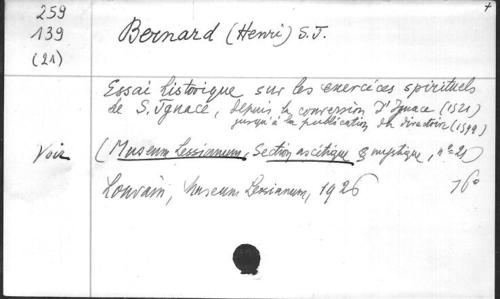 259
139
(21)
Bernard (Henri) S.J.
+
Essai historique sur les exercices spirituels
de S. Ignace, depuis la conversion d'Ignace (1521)
jusqu'à la publication du directoire (1599)
Voir
(Museum Lessianum, Section ascétique & mystique, n° 21)
Louvain, Museum Lessianum, 1926